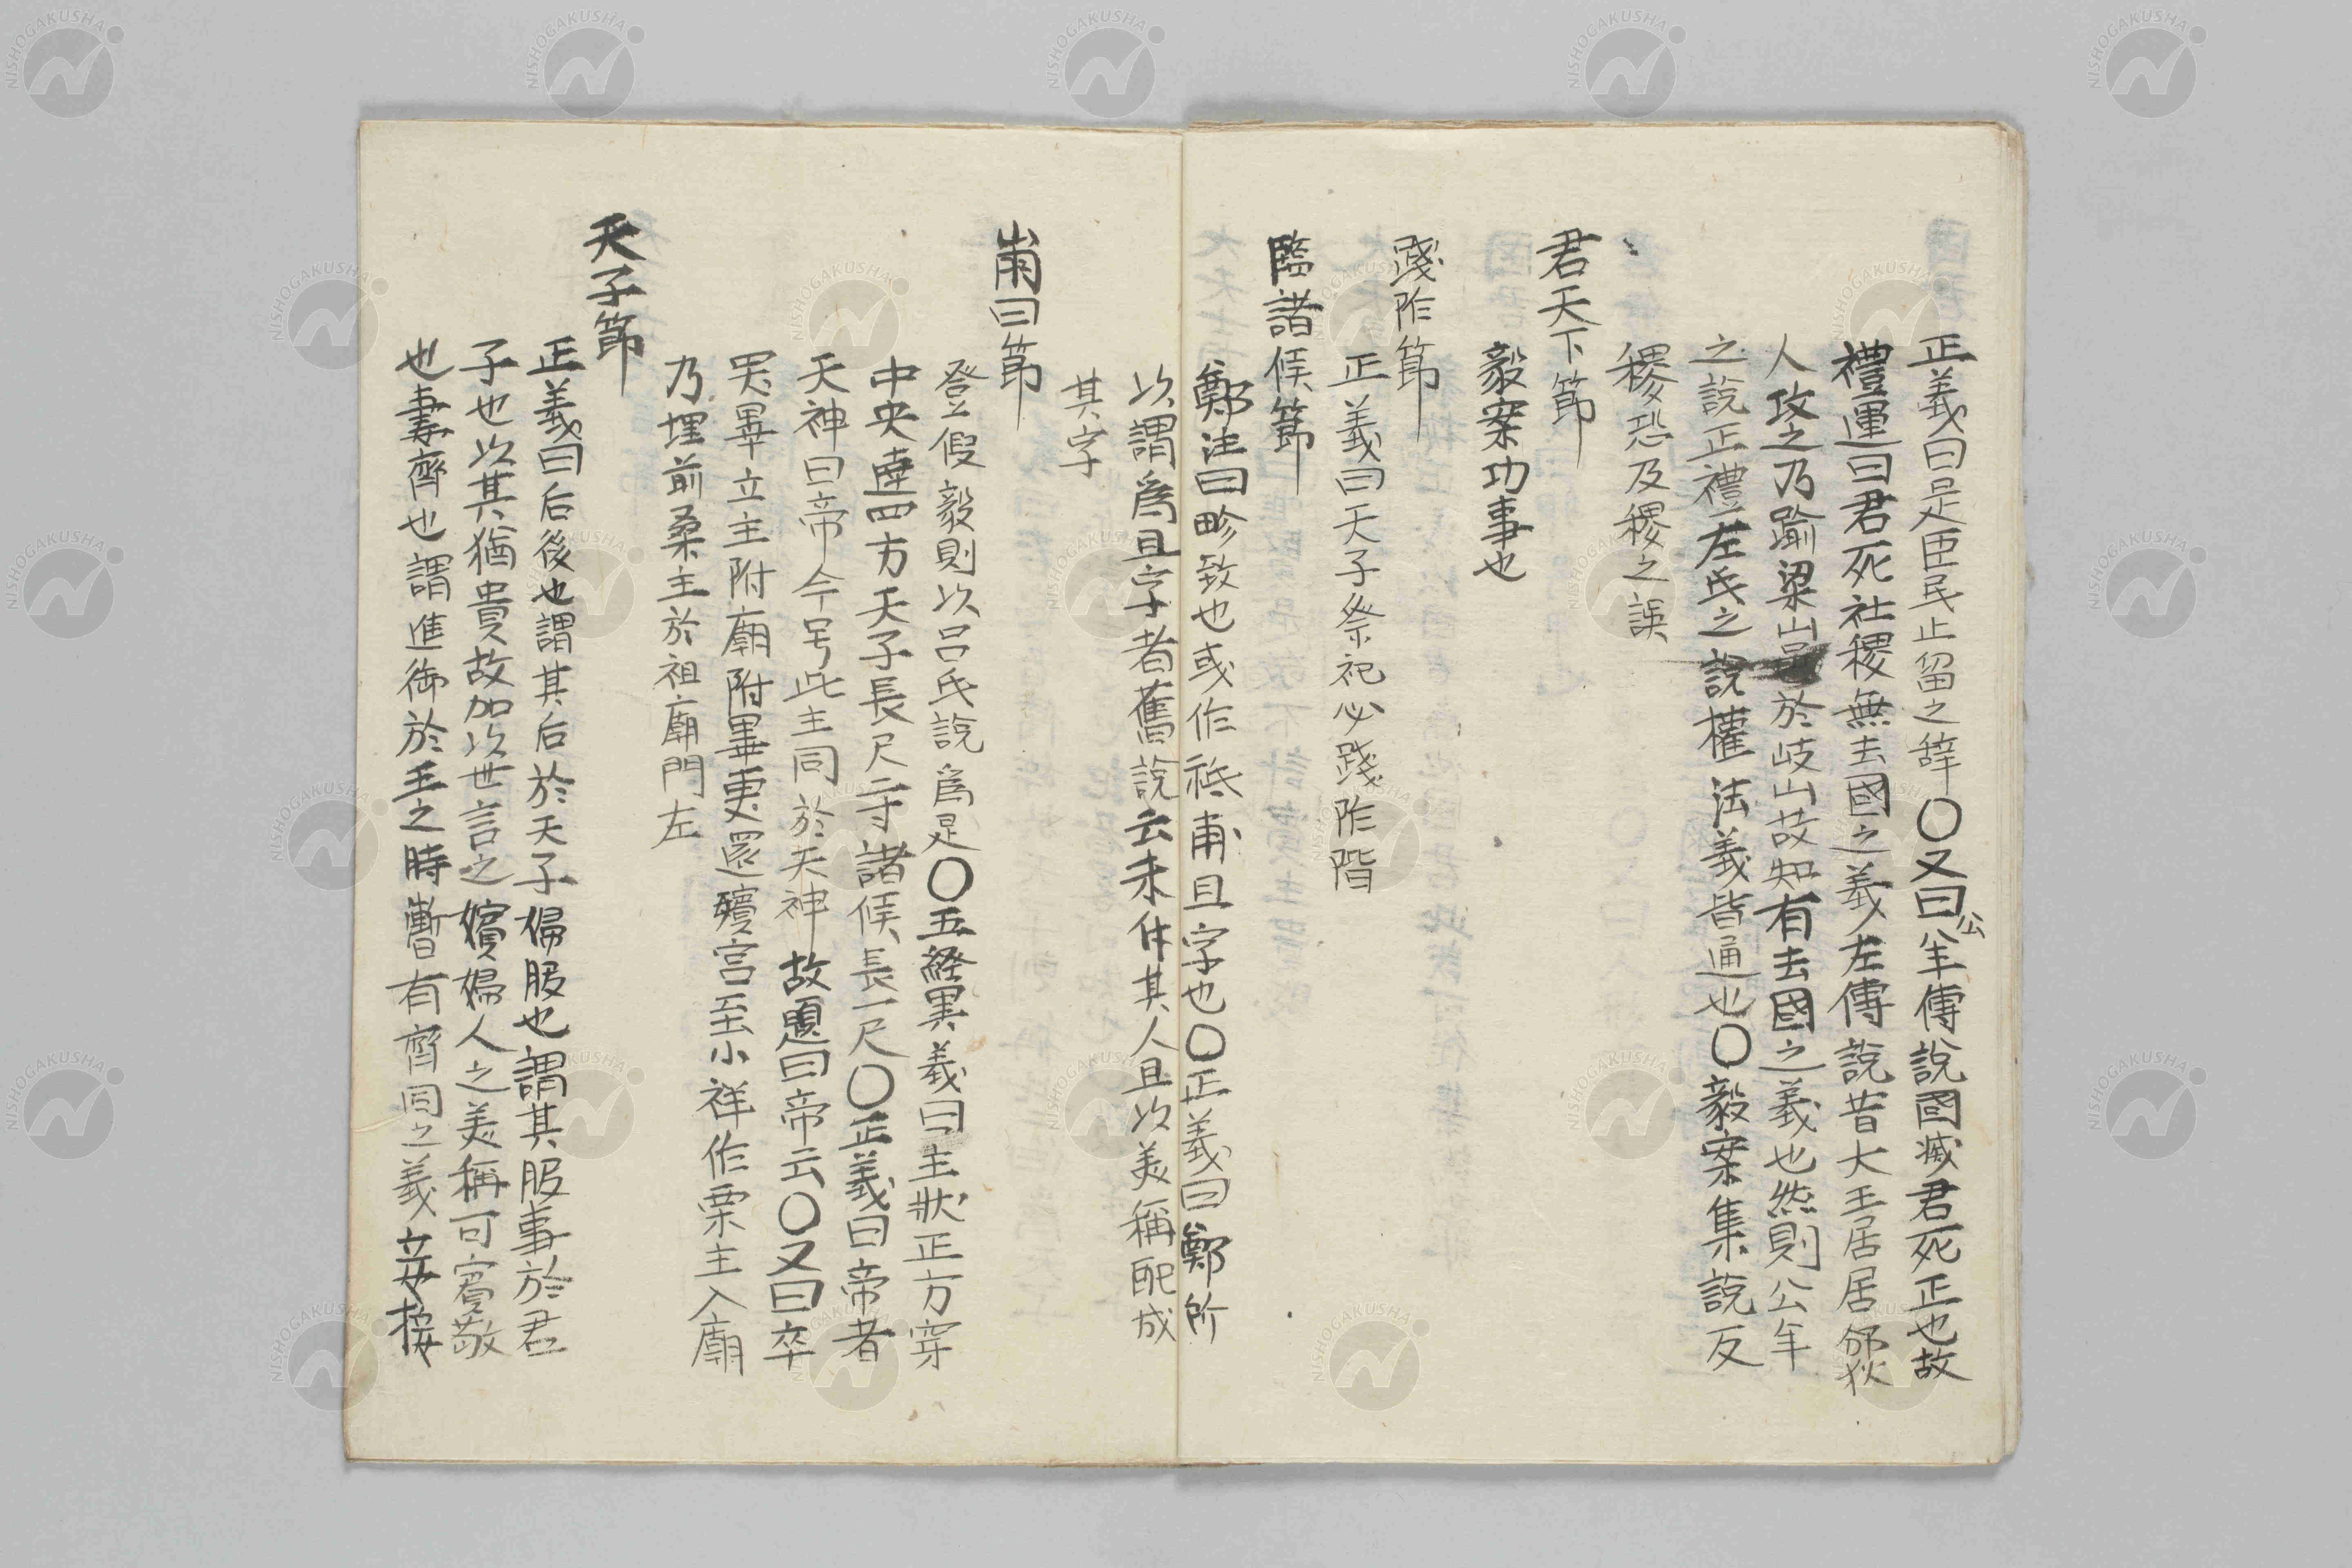 正義曰是臣民止留之辭〇又曰公羊傳說國滅君死正也故
禮運曰君死社稷無去國之義左傳說昔大王居居邠狄
人攻之乃踰梁山邑於岐山故知有去國之義也然則公羊
之說正禮左氏之說權法義皆通也〇毅案集說反
稷恐及稷之誤
君天下節
毅案功事也
踐阼節
正義曰天子祭祀必踐阼階
臨諸侯節
鄭注曰畛致也或作祗甫且字也〇正義曰鄭所
以謂爲且字者舊說云未仕其人且以美稱配成
其字
崩曰節
登假毅則以呂氏說爲是〇五經異義曰主狀正方穿
中央達四方天子長尺二寸諸侯長一尺〇正義曰帝者
天神曰帝今号此主同於天神故題曰帝云〇又曰卒
哭畢立主附廟附畢更還殯宮至小祥作栗主入廟
乃埋前桑主於祖廟門左
天子節
正義曰后後也謂其后於天子婦服也謂其服事於君
子也以其猶貴故加以世言之嬪婦人之美稱可賓敬
也妻齊也謂進御於王之時暫有齊同之義妾接
NISHOGAKUSHA